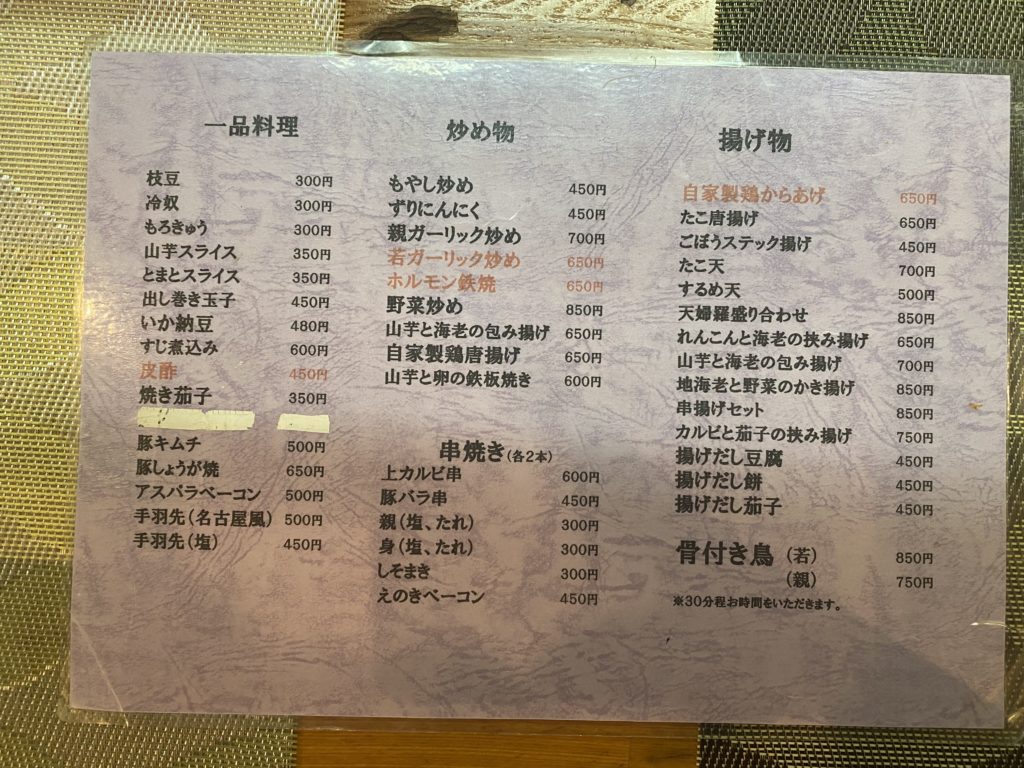 一品料理
枝豆 300円
冷奴 300円
もろきゅう 300円
山芋スライス 350円
とまとスライス 350円
出し巻き玉子 450円
いか納豆 480円
すじ煮込み 600円
皮酢 450円
焼き茄子 350円
豚キムチ 500円
豚しょうが焼 650円
アスパラベーコン 500円
手羽先（名古屋風） 500円
手羽先（塩） 450円
炒め物
もやし炒め 450円
ずりにんにく 450円
親ガーリック炒め 700円
若ガーリック炒め 650円
ホルモン鉄焼 650円
野菜炒め 850円
山芋と海老の包み揚げ 650円
自家製鶏唐揚げ 650円
山芋と卵の鉄板焼き 600円
串焼き（各2本）
上カルビ串 600円
豚バラ串 450円
親（塩、たれ） 300円
身（塩、たれ） 300円
しそまき 300円
えのきベーコン 450円
揚げ物
自家製鶏からあげ 650円
たこ唐揚げ 650円
ごぼうステック揚げ 450円
たこ天 700円
するめ天 500円
天婦羅盛り合わせ 850円
れんこんと海老の挟み揚げ 650円
山芋と海老の包み揚げ 700円
地海老と野菜のかき揚げ 850円
串揚げセット 850円
カルビと茄子の挟み揚げ 750円
揚げだし豆腐 450円
揚げだし餅 450円
揚げだし茄子 450円
骨付き鳥（若） 850円
（親） 750円
※30分程お時間をいただきます。